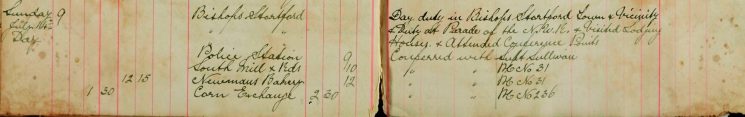 Sunday 9 Bishops Stortford Day duty in Bishops Stortford Town & Vicinity
July 16th " " & Duty at Parade of the N.R.R. & Visited Lodging
Day Houses & Attended Conference Points
Police Station 9 Conferred with Supt Sullivan
South Mill & Rds 10 " " PC No 31
12 15 Newmans Bakery 12 " " PC No 31
1 30 Corn Exchange 2 30 " " PC No 236